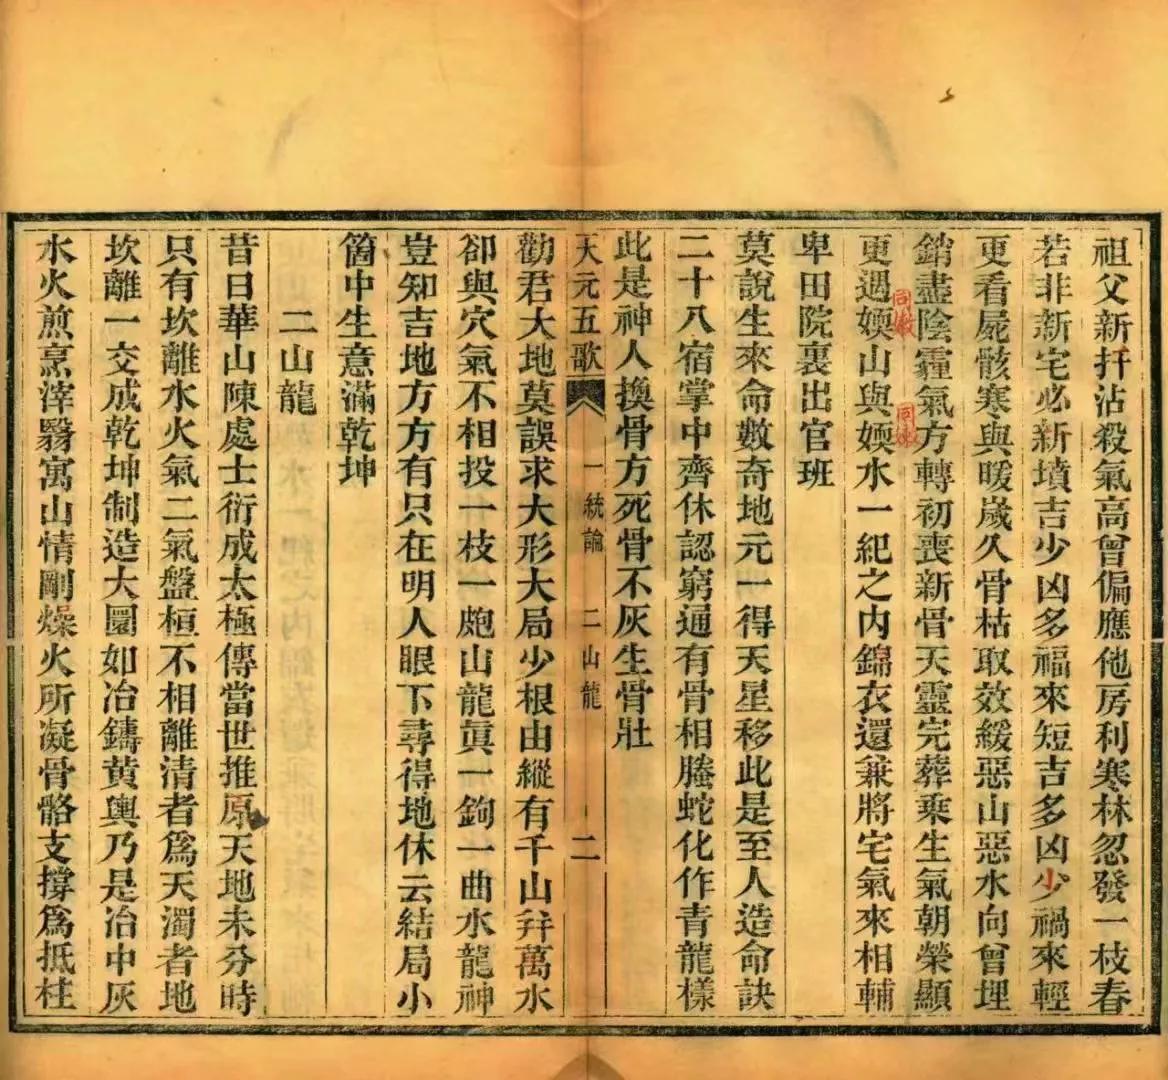 祖父新扞沾殺氣高曾偏應他房利寒林忽發一枝春
若非新宅必新墳吉少凶多福來短吉多凶少禍來輕
更看屍骸寒與暖歲久骨枯取效緩惡山惡水向曾埋
銷盡陰霾氣方轉初喪新骨天靈完葬乗生氣朝榮顯
更遇㜫山與㜫水一紀之内錦衣還兼將宅氣來相輔
卑田院裏出官班
莫說生來命數奇地元一得天星移此是至人造命訣
二十八宿掌中齊休認窮通有骨相螣蛇化作青龍樣
此是神人換骨方死骨不灰生骨壯
天元五歌 一統論 二山龍 二
勸君大地莫誤求大形大局少根由縱有千山并萬水
卻與穴氣不相投一枝一皰山龍眞一鉤一曲水龍神
豈知吉地方方有只在明人眼下尋得地休云結局小
箇中生意滿乾坤
二山龍
昔日華山陳處士衍成太極傳當世推原天地未分時
只有坎離水火氣二氣盤桓不相離清者爲天濁者地
坎離一交成乾坤制造大圜如冶鑄黄輿乃是冶中灰
水火煎烹滓翳寓山情剛燥火所凝骨骼支撐爲抵柱